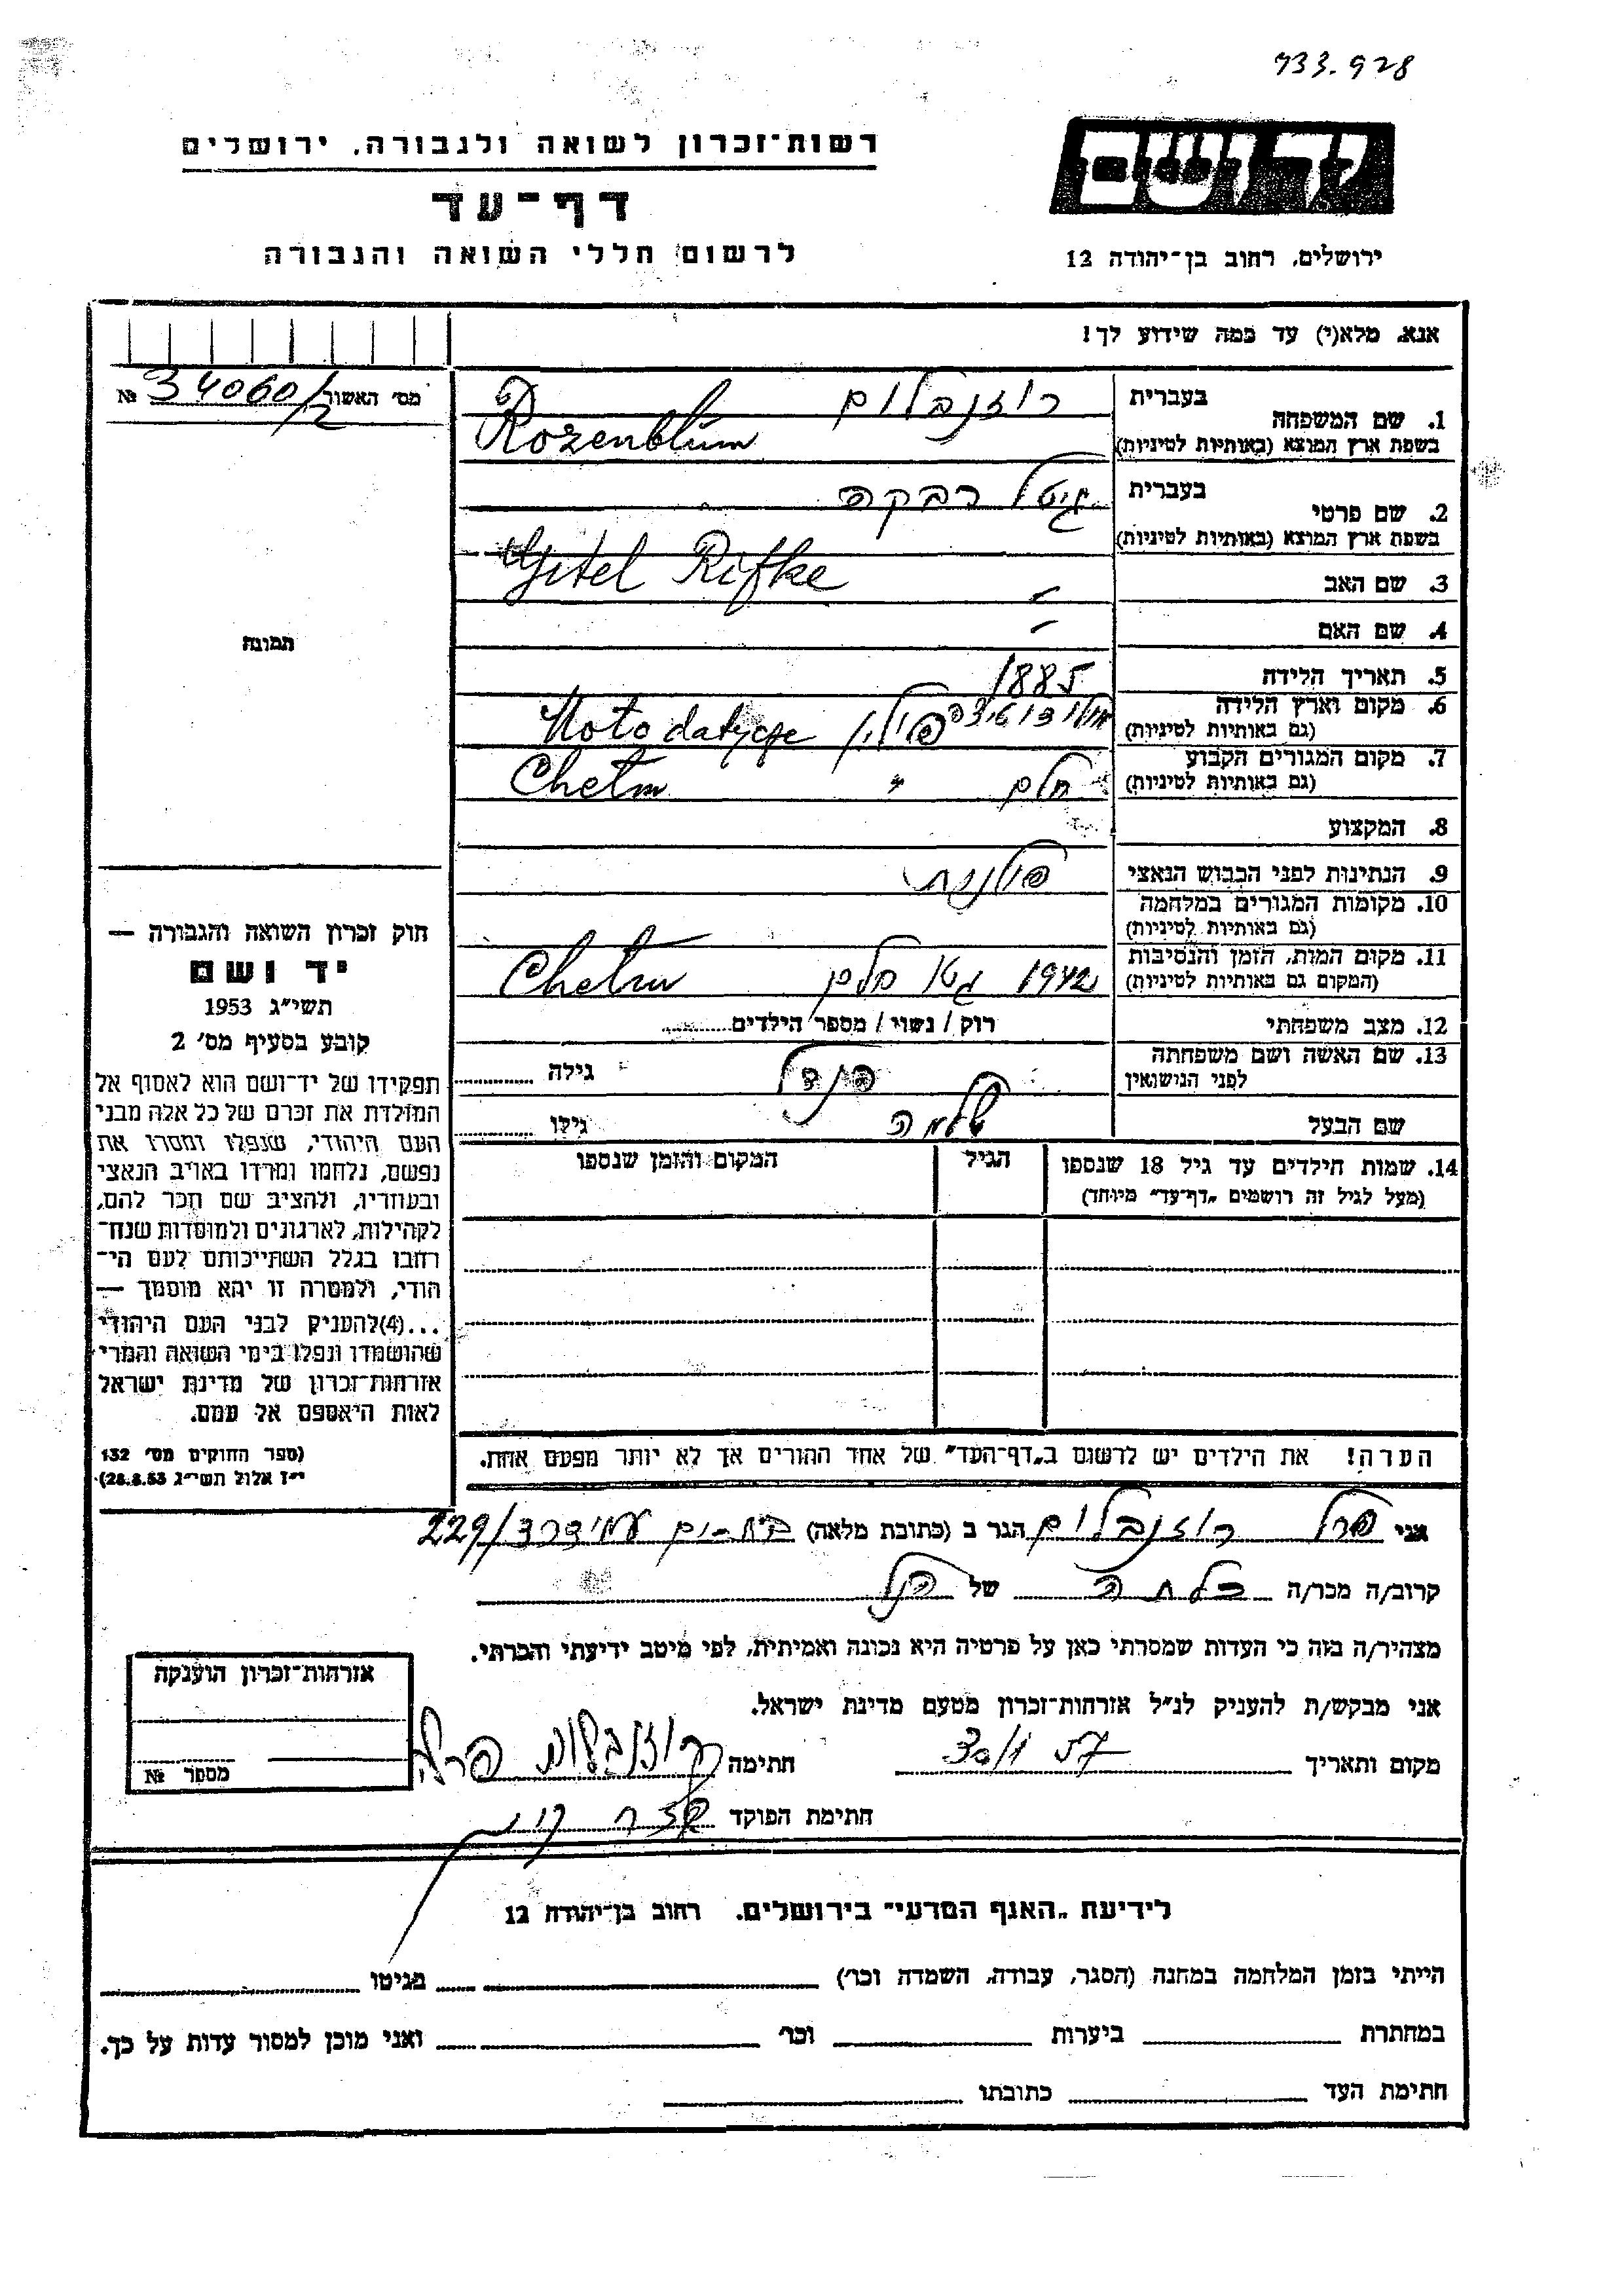 933.928
ידושם
ירושלים, רחוב בן־יהודה 12
רשות־זכרון לשואה ולגבורה, ירושלים
דף־עד
לרשום חללי השואה והגבורה
אנא, מלא(י) עד כמה שידוע לך!
מס׳ האשור 34060/2 №
תמונה
בעברית רוזנבלום
1. שם המשפחה
בשפת ארץ המוצא (באותיות לטיניות) Rozenblum
בעברית גיטל רבקה
2. שם פרטי
בשפת ארץ המוצא (באותיות לטיניות) Gitel Rifke
3. שם האב –
4. שם האם –
5. תאריך הלידה 1885
6. מקום וארץ הלידה פולין
(גם באותיות לטיניות)
7. מקום המגורים הקבוע חלם " Chełm
(גם באותיות לטיניות)
8. המקצוע
9. הנתינות לפני הכבוש הנאצי פולנית
10. מקומות המגורים במלחמה
(גם באותיות לטיניות)
11. מקום המות, הזמן והנסיבות 1942 גטו חלם Chełm
(המקום גם באותיות לטיניות)
12. מצב משפחתי רוק / נשוי / מספר הילדים
13. שם האשה ושם משפחתה הנדל גילה
לפני הנישואין
שם הבעל שלמה גילו
14. שמות הילדים עד גיל 18 שנספו הגיל המקום והזמן שנספו
(מעל לגיל זה רושמים „דף־עד" מיוחד)
הערה! את הילדים יש לרשום ב„דף־העד" של אחד ההורים אך לא יותר מפעם אחת.
חוק זכרון השואה והגבורה —
יד ושם
תשי״ג 1953
קובע בסעיף מס׳ 2
תפקידו של יד־ושם הוא לאסוף אל
המולדת את זכרם של כל אלה מבני
העם היהודי, שנפלו ומסרו את
נפשם, נלחמו ומרדו באויב הנאצי
ובעוזריו, ולהציב שם וזכר להם,
לקהילות, לארגונים ולמוסדות שנח־
רחבו בגלל השתייכותם לעם הי־
הודי, ולמטרה זו יהא מוסמך —
...(4)להעניק לבני העם היהודי
שהושמדו ונפלו בימי השואה והמרי
אזרחות־זכרון של מדינת ישראל
לאות היאספם אל עמם.
(ספר החוקים מס׳ 132
י״ז אלול תשי״ג 28.8.53)
אני פרל רוזנבלום הגר ב (כתובת מלאה) בת-ים עמידר 229/
קרוב/ה מכר/ה כלתה של הנ״ל
מצהיר/ה בזה כי העדות שמסרתי כאן על פרטיה היא נכונה ואמיתית, לפי מיטב ידיעתי והכרתי.
אני מבקש/ת להעניק לנ״ל אזרחות־זכרון מטעם מדינת ישראל.
מקום ותאריך 30/1 57 חתימה רוזנבלום פרלה
חתימת הפוקד
אזרחות־זכרון הוענקה
מספר №
לידיעת „האגף המדעי" בירושלים, רחוב בן־יהודה 12
הייתי בזמן המלחמה במחנה (הסגר, עבודה, השמדה וכו׳) בגיטו
במחתרת ביערות וכו׳ ואני מוכן למסור עדות על כך.
חתימת העד כתובתו